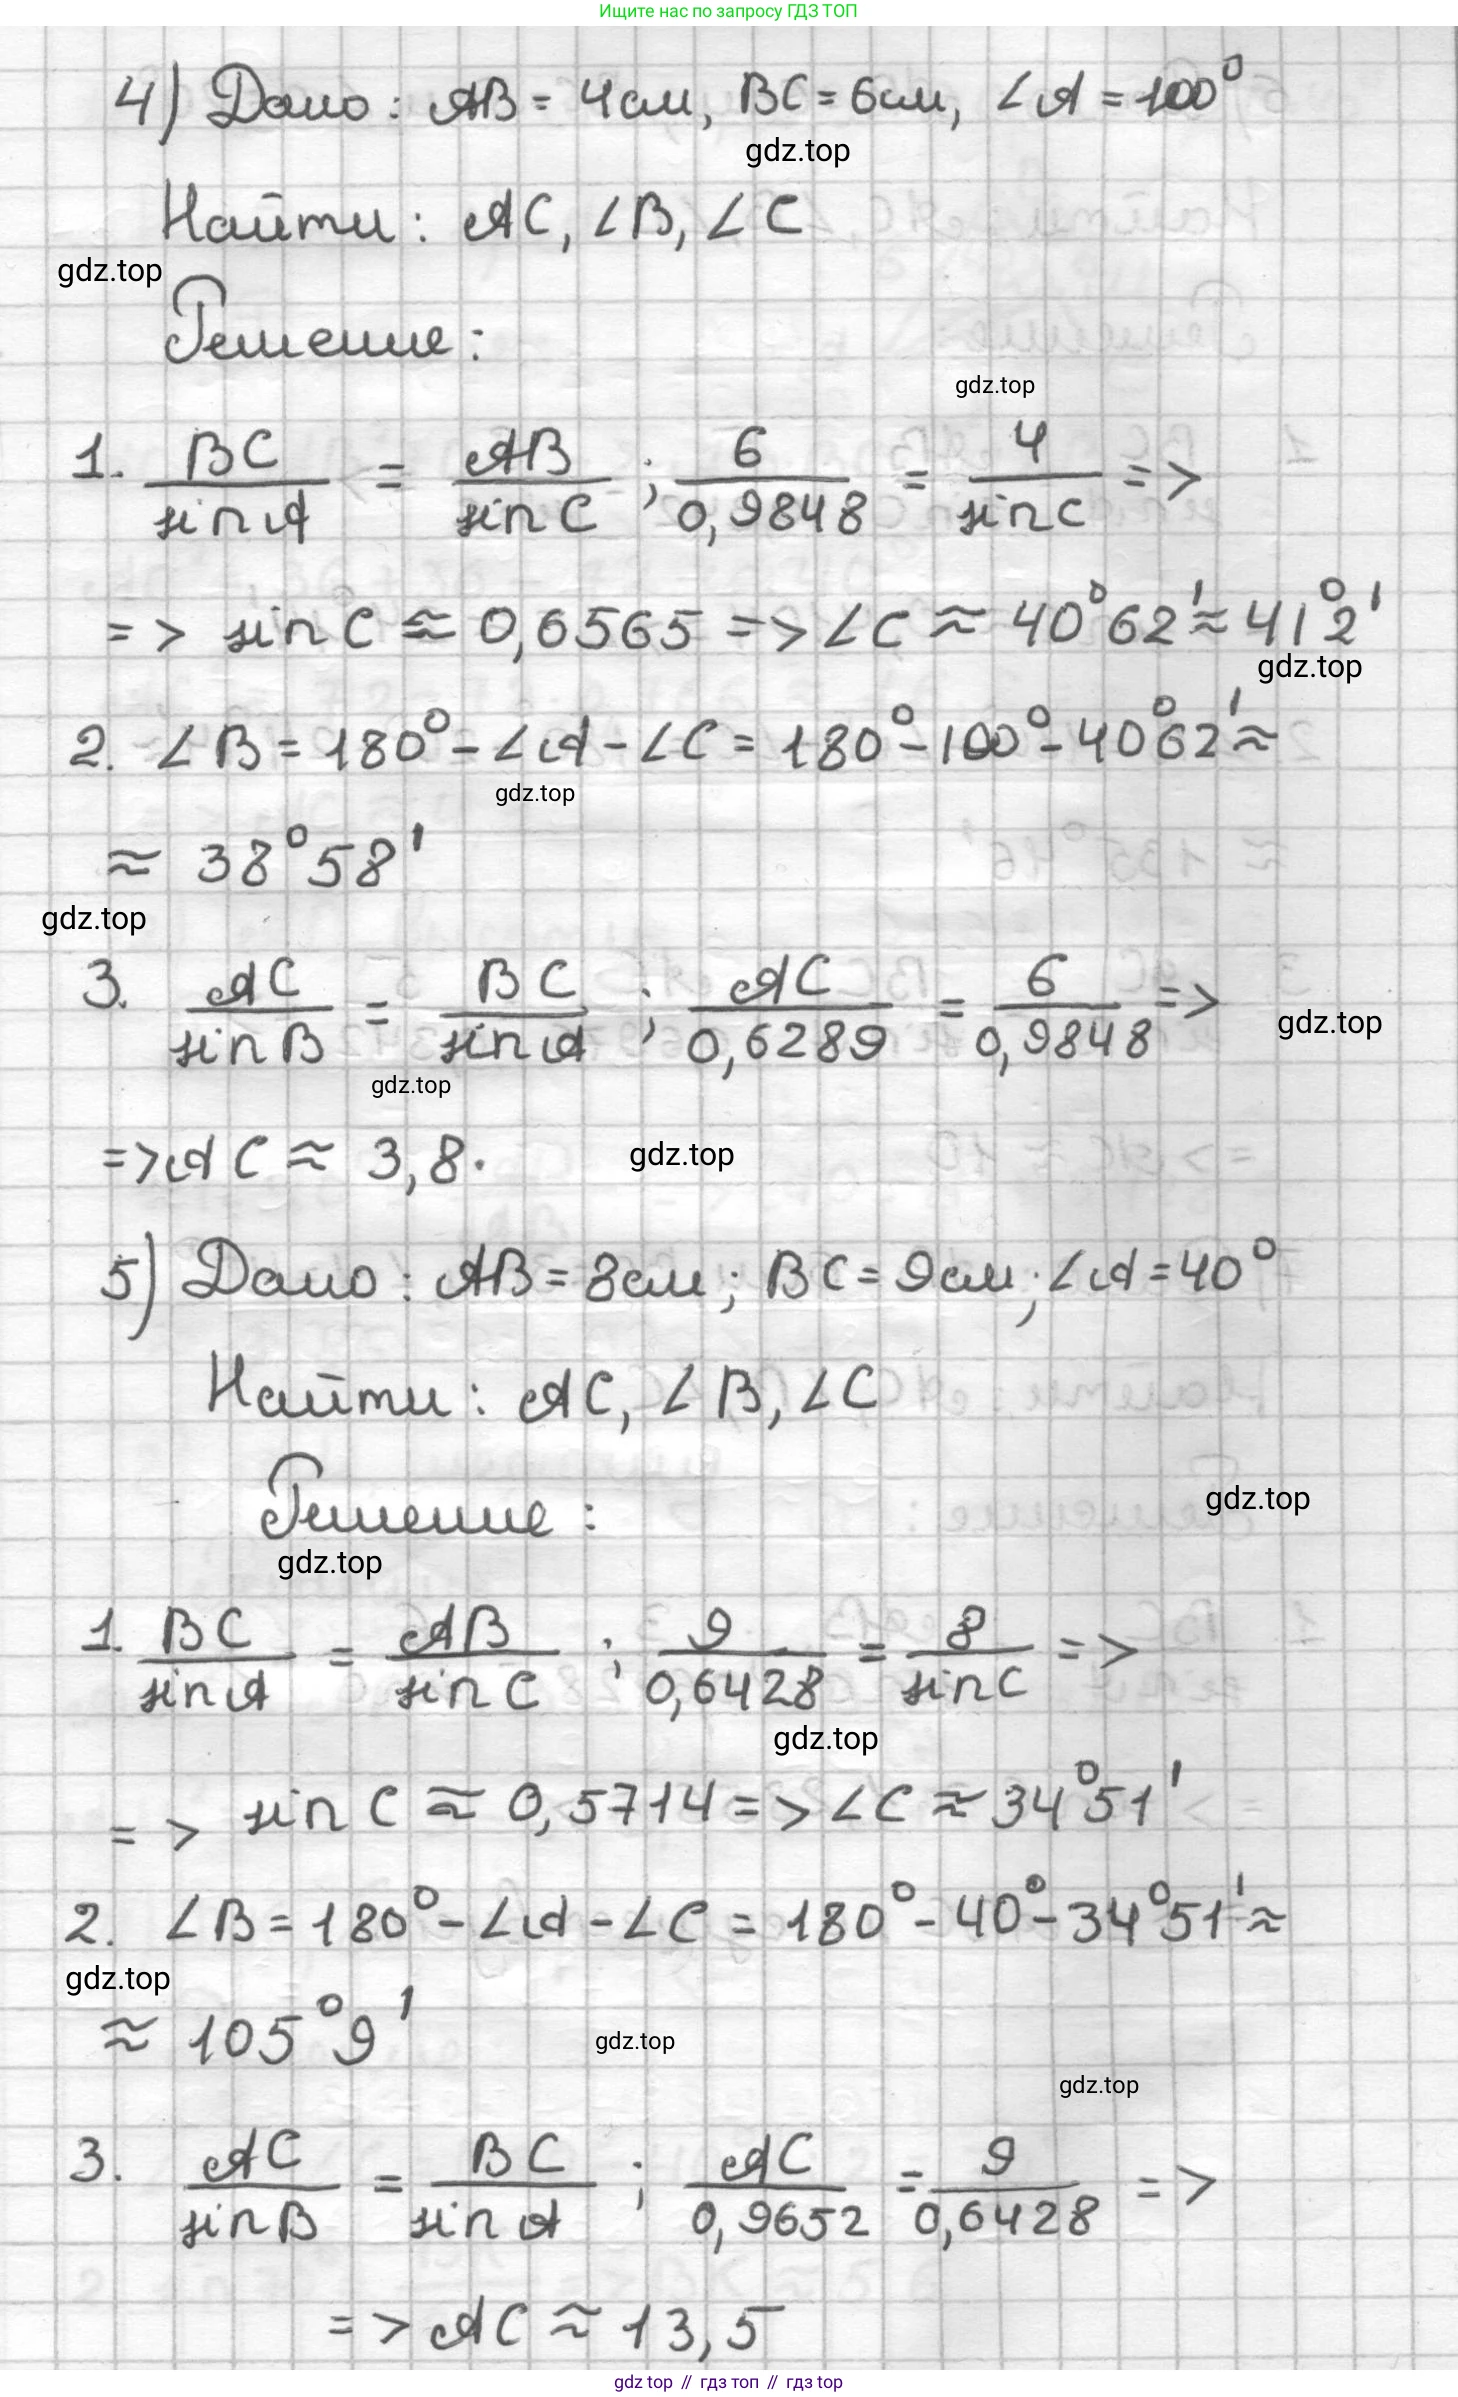 Ищите нас по запросу ГДЗ ТОП
4) Дано: AB = 4см, BC = 6см, ∠A = 100°
gdz.top
Найти: AC, ∠B, ∠C
gdz.top
Решение:
gdz.top
1. BC/sin A = AB/sin C ; 6/0,9848 = 4/sin C =>
=> sin C ≈ 0,6565 => ∠C ≈ 40°62' ≈ 41°2'
gdz.top
2. ∠B = 180° - ∠A - ∠C = 180° - 100° - 40°62' ≈
gdz.top
≈ 38°58'
gdz.top
3. AC/sin B = BC/sin A ; AC/0,6289 = 6/0,9848 =>
gdz.top
gdz.top
=> AC ≈ 3,8.
gdz.top
5) Дано: AB = 8см; BC = 9см; ∠A = 40°
Найти: AC, ∠B, ∠C
Решение:
gdz.top
gdz.top
1. BC/sin A = AB/sin C ; 9/0,6428 = 8/sin C =>
gdz.top
=> sin C ≈ 0,5714 => ∠C ≈ 34°51'
2. ∠B = 180° - ∠A - ∠C = 180° - 40° - 34°51' ≈
gdz.top
≈ 105°9'
gdz.top
gdz.top
3. AC/sin B = BC/sin A ; AC/0,9652 = 9/0,6428 =>
=> AC ≈ 13,5
gdz top // гдз топ // гдз top